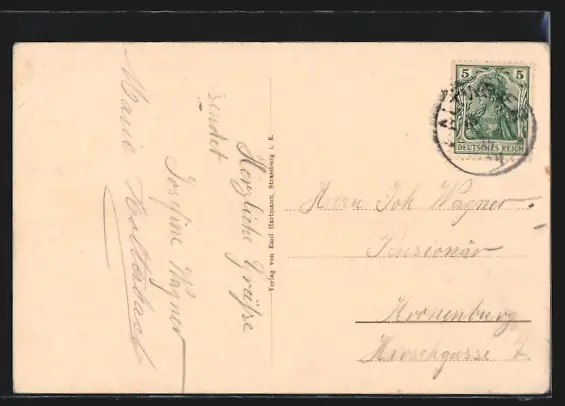 Herzliche Grüße
sendet
Josefine Wagner
Marie
Verlag von Emil Hartmann, Strassburg i. E.
5 5
DEUTSCHES REICH
Herrn Joh Wagner
Pensionär
Kronenburg
Hirschgasse